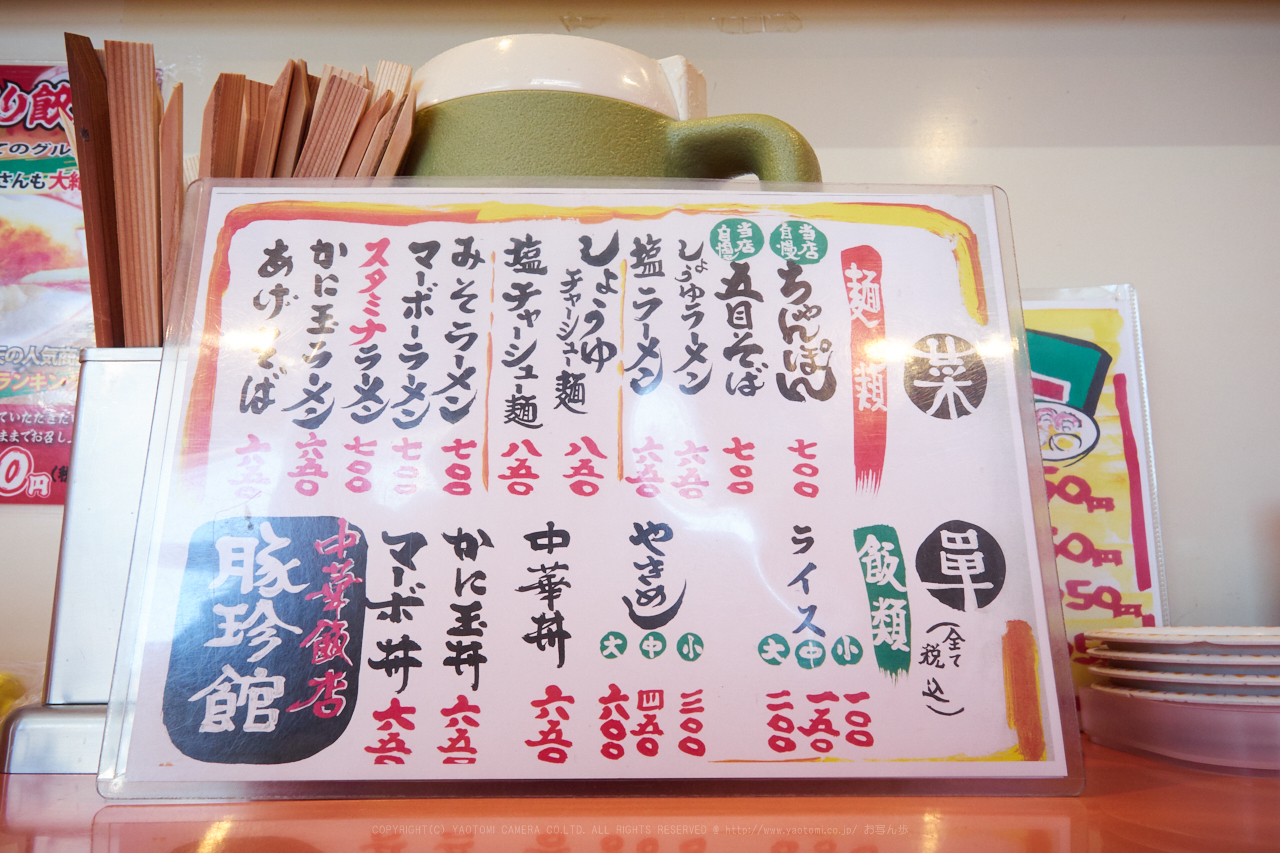 菜單
(全て税込)
麺類
当店自慢
ちゃんぽん
七〇〇
当店自慢
五目そば
七〇〇
しょうゆラーメン
六五〇
塩ラーメン
六五〇
しょうゆチャーシュー麺
八五〇
塩チャーシュー麺
八五〇
みそラーメン
七〇〇
マーボーラーメン
七〇〇
スタミナラーメン
七〇〇
かに玉ラーメン
六五〇
あげそば
六五〇
飯類
ライス
小 一〇〇
中 一五〇
大 二〇〇
やきめし
小 三〇〇
中 四五〇
大 六〇〇
中華丼
六五〇
かに玉丼
六五〇
マーボ丼
六五〇
中華飯店
豚珍館
てのグル
さんも大
の人気
ランキン
ていただきた
ままでお召し
0円
COPYRIGHT(C) YAOTOMI CAMERA CO.LTD. ALL RIGHTS RESERVED @ http://www.yaotomi.co.jp/ お写ん歩